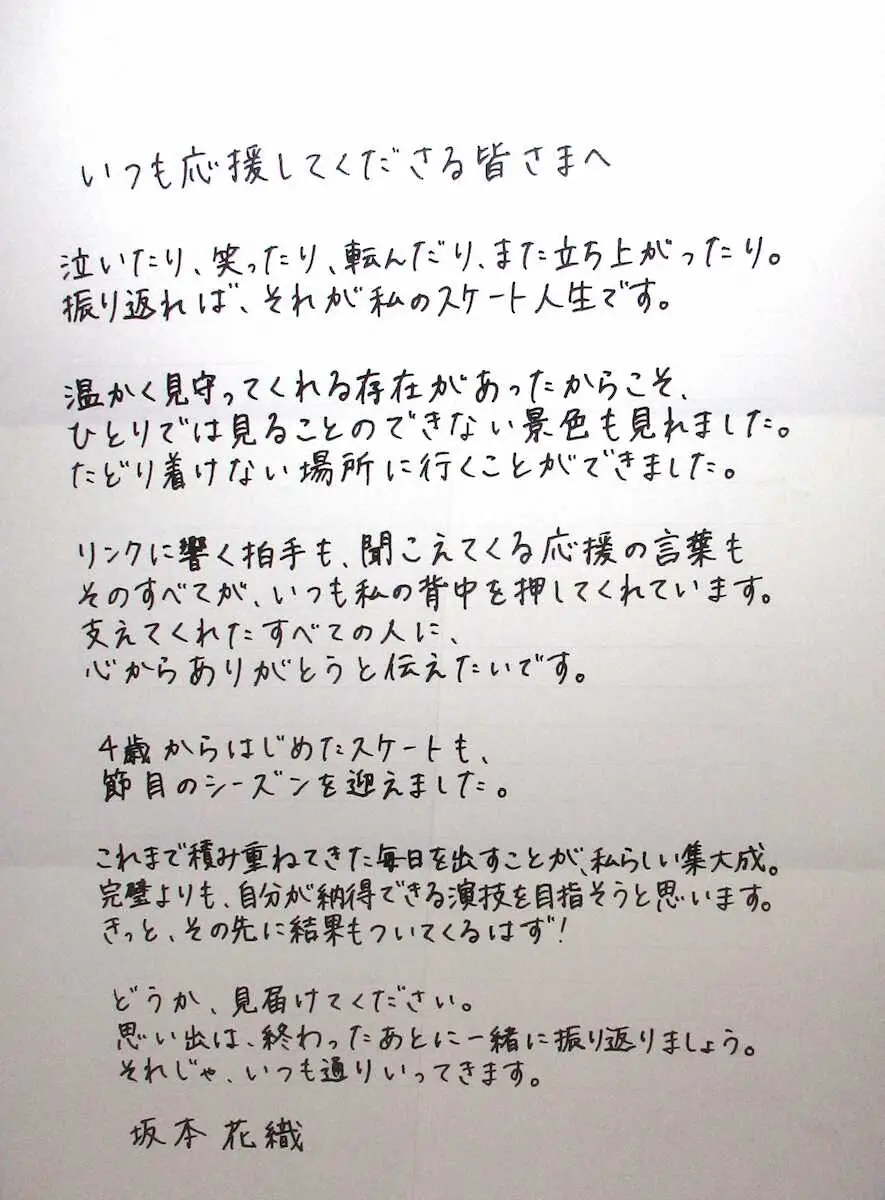 いつも応援してくださる皆さまへ
泣いたり、笑ったり、転んだり、また立ち上がったり。
振り返れば、それが私のスケート人生です。
温かく見守ってくれる存在があったからこそ、
ひとりでは見ることのできない景色も見れました。
たどり着けない場所に行くことができました。
リンクに響く拍手も、聞こえてくる応援の言葉も
そのすべてが、いつも私の背中を押してくれています。
支えてくれたすべての人に、
心からありがとうと伝えたいです。
4歳からはじめたスケートも、
節目のシーズンを迎えました。
これまで積み重ねてきた毎日を出すことが、私らしい集大成。
完璧よりも、自分が納得できる演技を目指そうと思います。
きっと、その先に結果もついてくるはず!
どうか、見届けてください。
思い出は、終わったあとに一緒に振り返りましょう。
それじゃ、いつも通りいってきます。
坂本花織